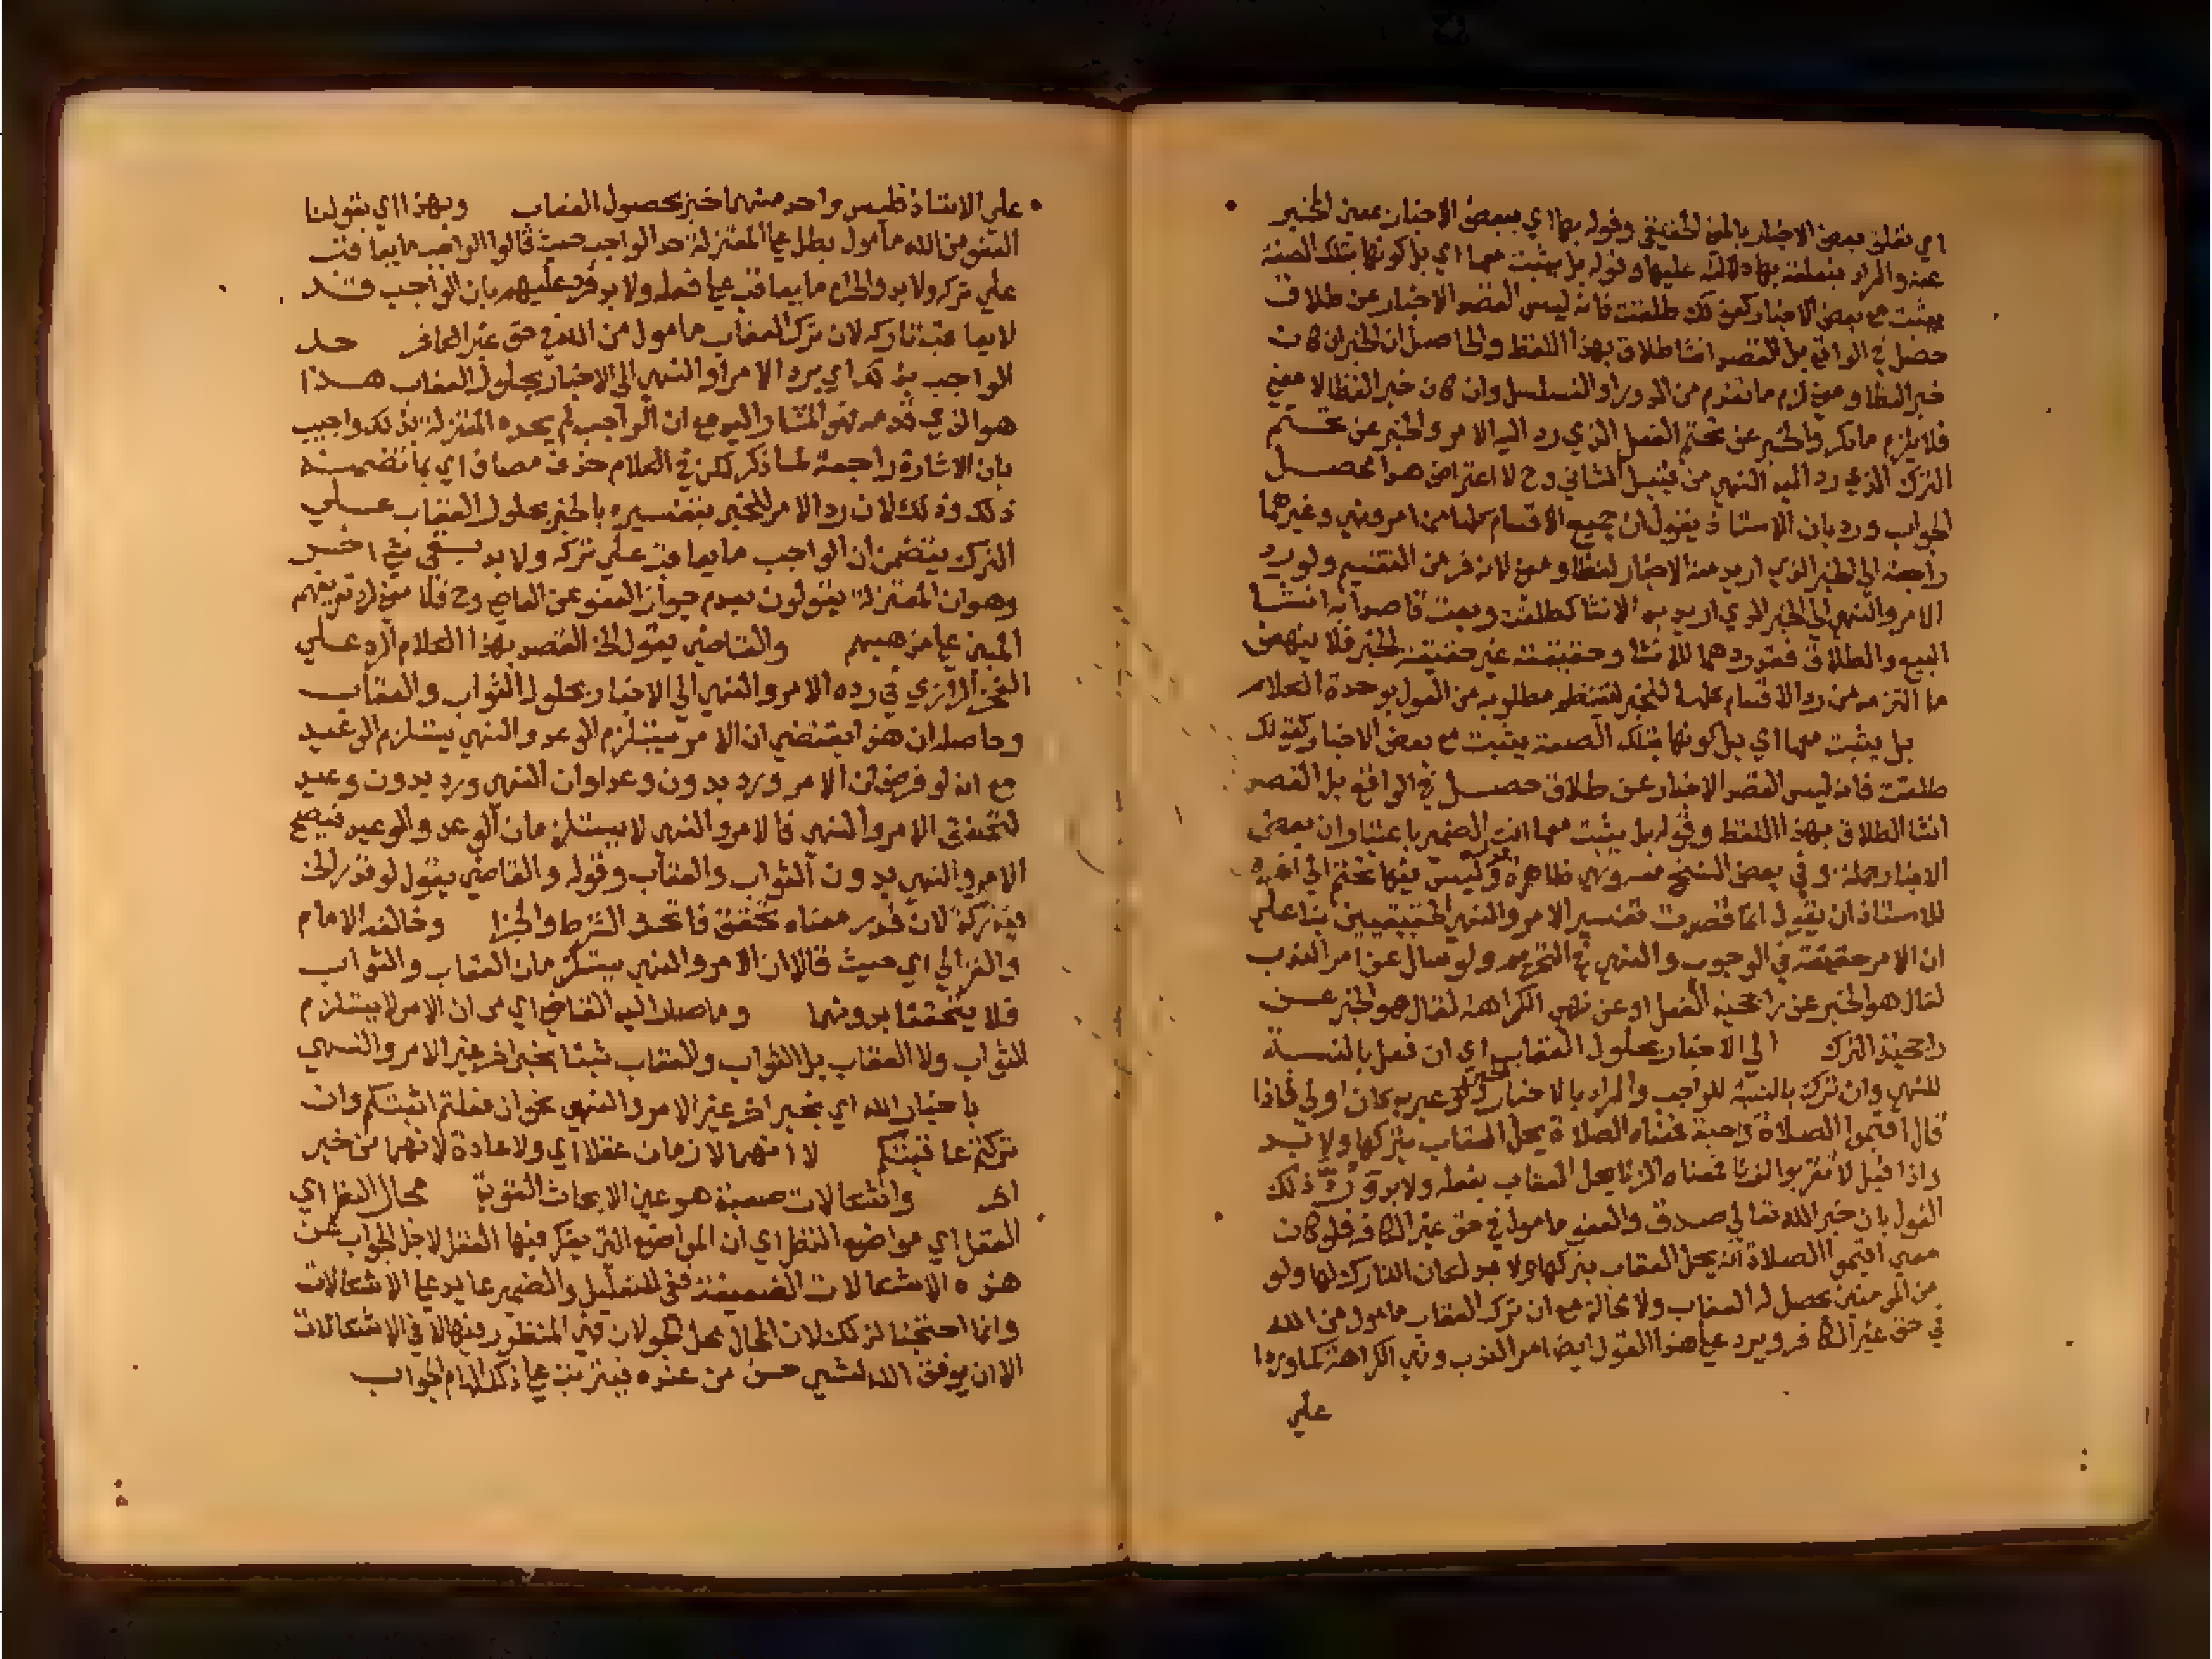 اي تعلق بعض الاخبار بالمعنى الحقيقي وقوله بها اي ببعض الاخبار بمعنى الخبر
عنه والمراد بتعلقه بها دلالته عليها وقوله بل يثبت معها اي بل كونها بتلك الصفة
يثبت مع بعض الاخبار كمن لك طلقت فانه ليس القصد الاخبار عن طلاق
حصل في الواقع بل القصد انشا طلاق بهذا اللفظ والحاصل ان الخبر ان كان
خبرا لفظا ومعنى لزم ما تقدم من الدور او التسلسل وان كان خبرا لفظا لا معنى
فلا يلزم ما ذكر والخبر عن تحتم الفعل الذي رد اليه الامر والخبر عن تحتم
الترك الذي رد اليه النهي من قبيل الثاني وح لا اعتراض هوا محصل
الجواب ورد بان الاستاذ يقول ان جميع الاقسام كلها من امر ونهي وغيرهما
راجعة الي الخبر الذي اريد منه الاخبار لفظا ومعنى لانه فر من التقسيم ولو رد
الامر والنهي الي الخبر الذي اريد به الانشا كطلقت وبعت قاصدا به انشا
البيع والطلاق فقد ردهما للانشا وحقيقته غير حقيقة الخبر فلا ينهض
ما التزمه من رد الاقسام كلها للخبر لينتظم مطلوبه من القول بوحدة الكلام
بل يثبت معها اي بل كونها بتلك الصفة يثبت مع بعض الاخبار كقولك
طلقت فانه ليس القصد الاخبار عن طلاق حصل في الواقع بل القصد
انشا الطلاق بهذا اللفظ وقوله بل يثبت معها انث الضمير باعتبار ان بعض
الاخبار جملة وفي بعض النسخ معه وهي ظاهرة وليس فيها تحتم الي اخره
للاستاذ ان يقول انما قصرت تفسير الامر والنهي الحقيقيين بناء علي
ان الامر حقيقة في الوجوب والنهي في التحريم ولو سال عن امر الندب
لقال هو الخبر عن راجحية الفعل او عن نهي الكراهة لقال هو الخبر عن
راجحية الترك الي الاخبار بحلول العقاب اي ان فعل بالنسبة
للنهي وان ترك بالنسبة للواجب والمراد بالاخبار لو عبر به كان اولي فاذا
قال اقيموا الصلاة واجبة فمعناه الصلاة يحل العقاب بتركها ولابد
واذا قيل لا تقربوا الزنا فمعناه الزنا يحل العقاب بفعله ولابد ذلك
القول بان خبر الله تعالي صدق والعفو مامول في حق غير الكافر فلو كان
معني اقيموا الصلاة انه يحل العقاب بتركها ولا بد لكان التارك لها ولو
من المومنين يحصل له العقاب ولا محالة مع ان ترك العقاب مامول من الله
في حق غير الكافر ويرد علي هذا القول ايضا امر الندب ونهي الكراهة كما وردا
علي
علي الاستاذ فليس واحد منهما خبر بحصول العقاب وبهذا اي بقولنا
العفو من الله مامول بطل علي المعتزلة حد الواجب حيث قالوا الواجب ما يعاقب
علي تركه ولابد والحرام ما يعاقب علي فعله ولابد فرد عليهم بان الواجب قد
لا يعاقب تاركه لان ترك العقاب مامول من الله في حق غير الكافر حد
الواجب بذلك اي برد الامر او النهي الي الاخبار بحلول العقاب هذا
هو الذي قدمه فهو المشار اليه مع ان الواجب لم يحده المعتزلة بذلك واجيب
بان الاشارة راجعة لما ذكر لكن في الكلام حذف مضاف اي بما تضمنه
ذلك وذلك لان رد الامر للخبر بتفسيره بالخبر بحلول العقاب علي
الترك يتضمن ان الواجب ما يعاقب علي تركه ولابد بقي شي اخر
وهو ان المعتزلة يقولون بعدم جواز العفو عن العاصي وح فلا معني لرد تعريفهم
المبني علي مذهبهم والقاضي يقول الخ القصد بهذا الكلام الرد علي
الفخر الرازي في رده الامر والنهي الي الاخبار بحلول الثواب والعقاب
وحاصله ان هذا يقتضي ان الامر يستلزم الوعد والنهي يستلزم الوعيد
مع انه لو فرض ان الامر ورد بدون وعد او ان النهي ورد بدون وعيد
لتحقق الامر والنهي فالامر والنهي لا يستلزمان الوعد والوعيد فيصح
الامر والنهي بدون الثواب والعقاب وقوله والقاضي يقول لو قدر الخ
لان قدر معناه تحقق فاتحد الشرط والجزا وخالفه الامام
والغزالي اي حيث قالا ان الامر والنهي يستلزمان العقاب والثواب
فلا يتحققا بدونهما وما صار اليه القاضي اي من ان الامر لا يستلزم
الثواب ولا العقاب بل الثواب والعقاب ثبتا بخبر اخر غير الامر والنهي
باخبار الله اي بخبر اخر غير الامر والنهي نحو ان فعلتم اثبتكم وان
تركتم عاقبتكم لا انهما لازمان عقلا اي ولا عادة لانهما من خبر
اخر واشكالات صعبة هو عين الابحاث القوية مجال النظر اي
العقل اي مواضع النظر اي ان المواضع التي يفكر فيها العقل لاجل الجواب عن
هذه الاشكالات الضعيفة ففي للتعليل والضمير عايد علي الاشكالات
وانما احتجنا لذلك لان المجال محل الجولان فهي المنظور فيها لا في الاشكالات
الا ان يوفق الله لشي حسن من عنده فيترتب علي ذلك الجواب